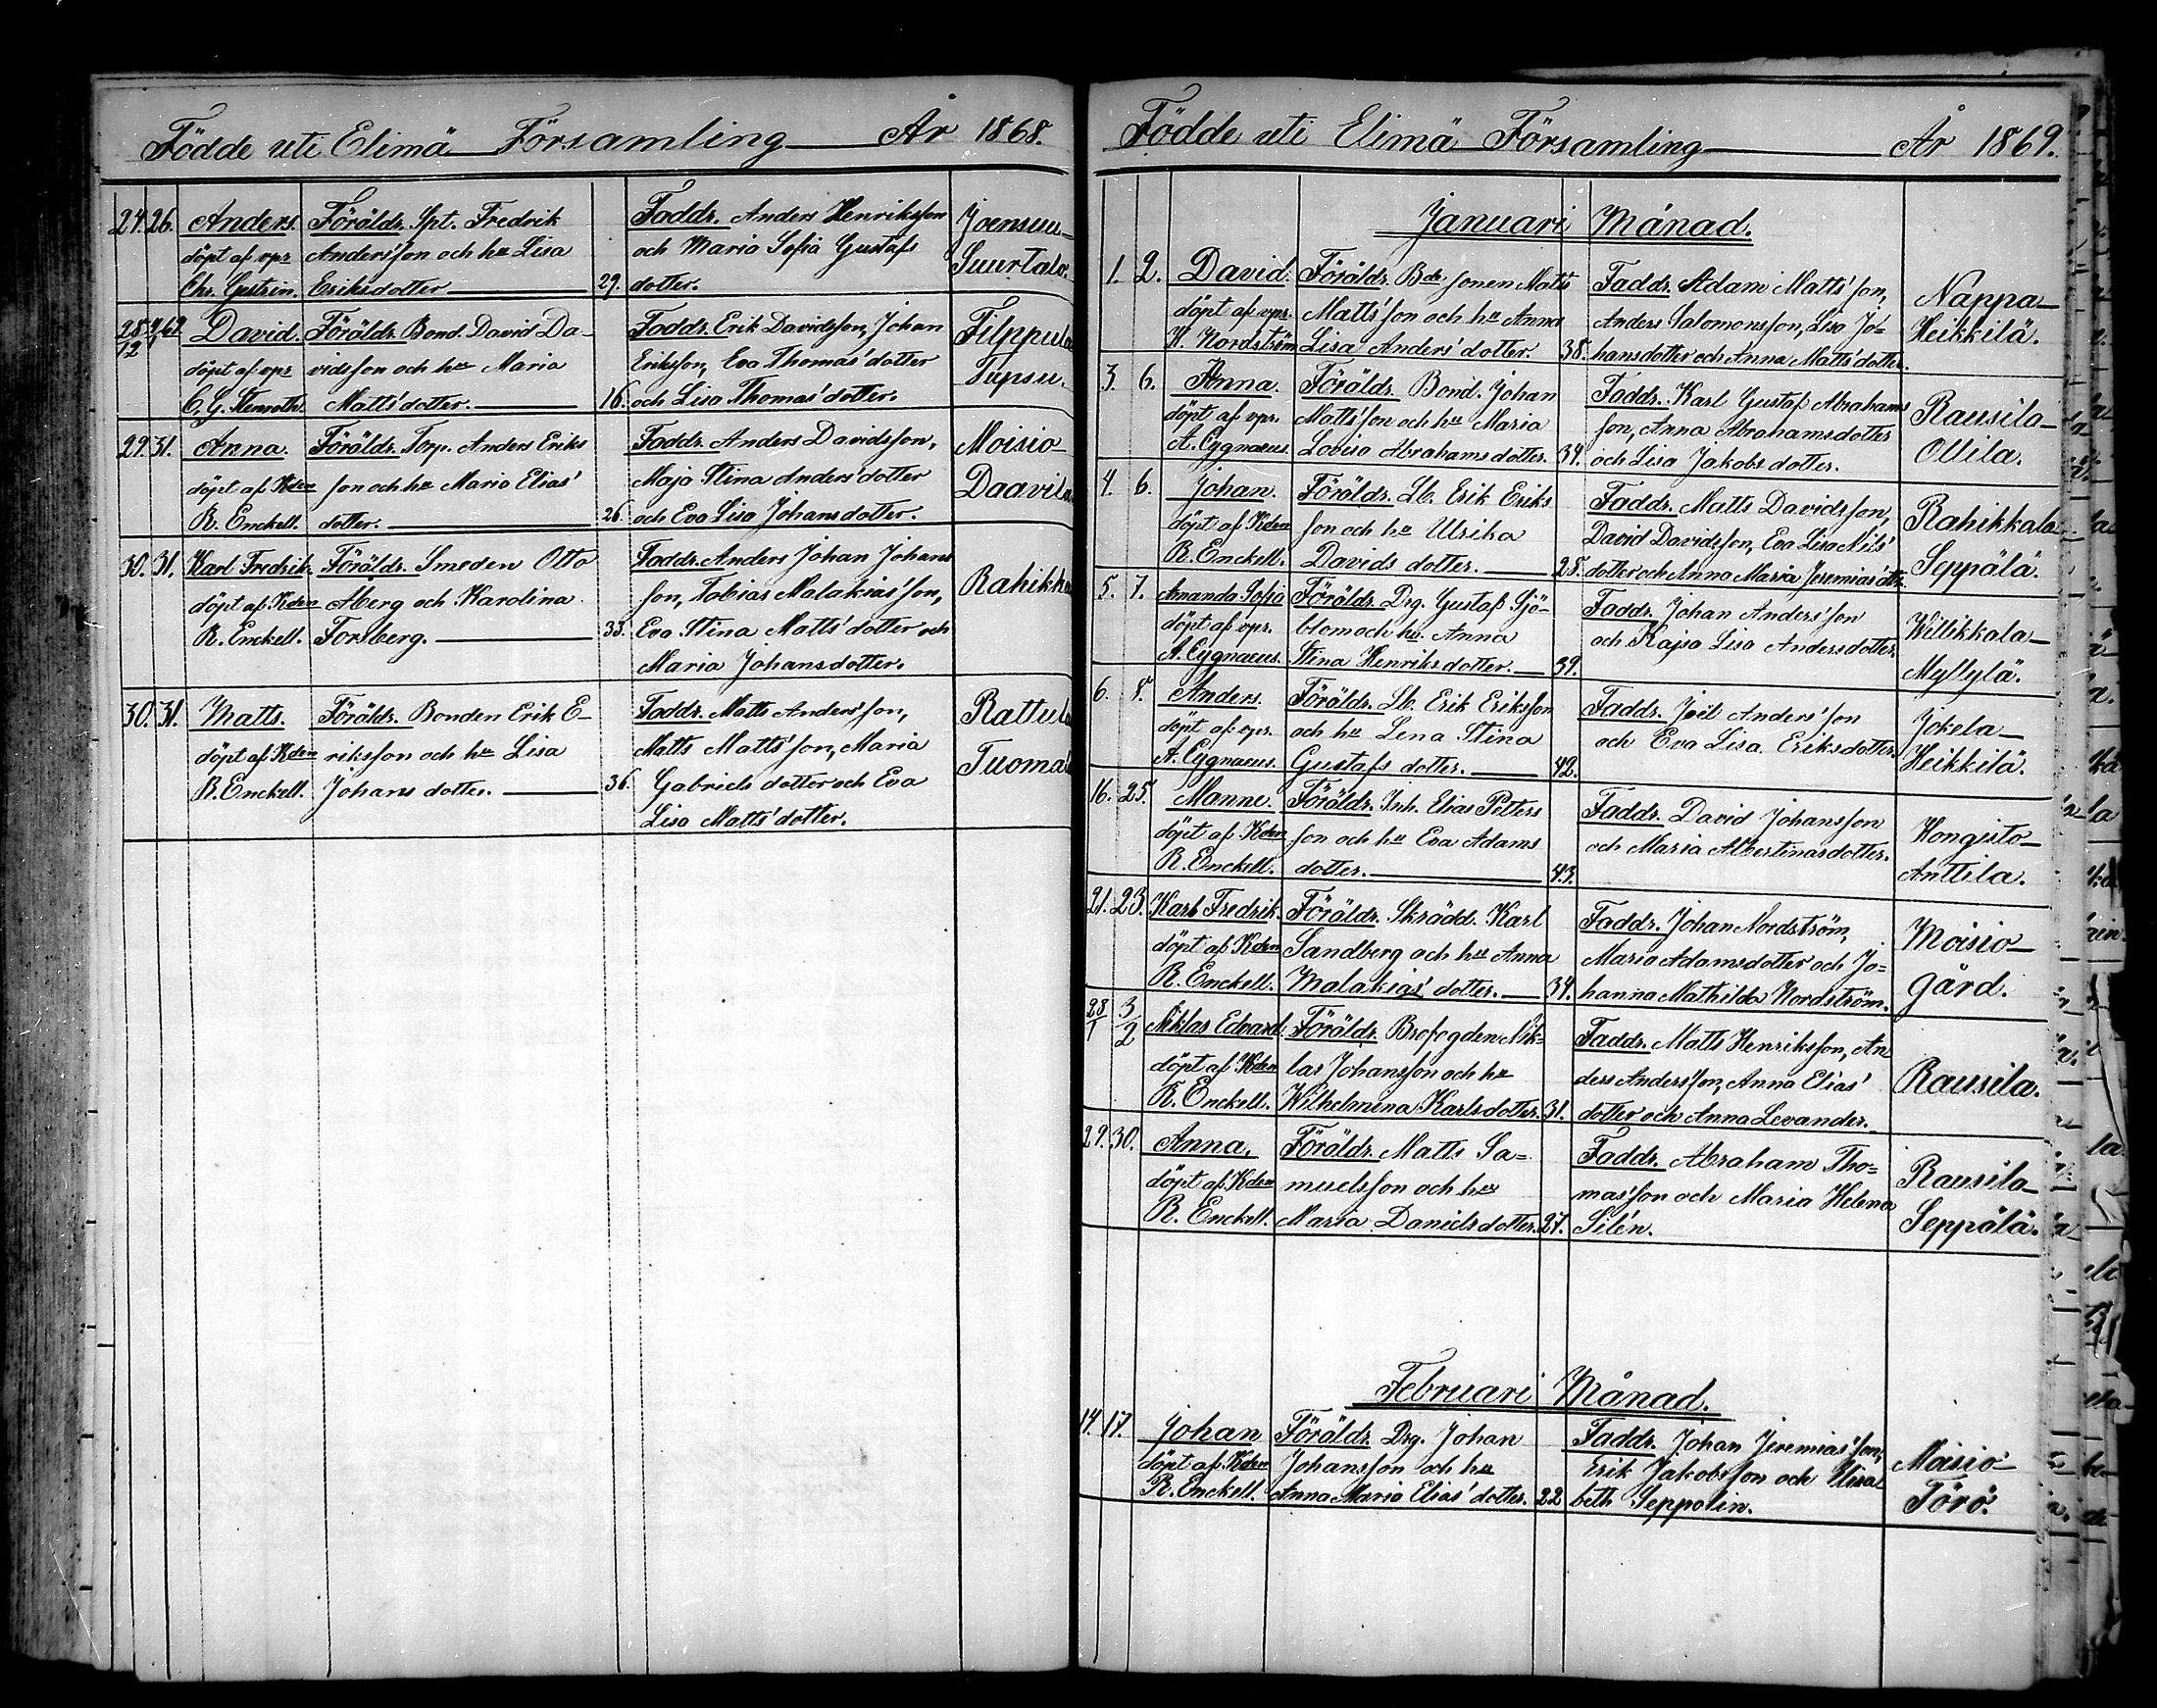 Födde uti Elimä Församling År 1868.
24. 26. Anders. Föräldr. Spt. Fredrik Faddr. Anders Henriksson Joensuu-
döpt af vpr Anders'son och hu Lisa och Maria Sofia Gustafs Suurtalo.
Chr. Gestrin. Eriksdotter 29. dotter.
28/12 David. Föräldr. Bond. David Da- Faddr. Erik Davidsson, Johan Filppula
döpt af vpr vidsson och hu Maria Eriksson, Eva Thomas'dotter Tupsu.
C. G. Stenroth. Matts'dotter. 16. och Lisa Thomas'dotter.
29. 31. Anna. Föräldr. Torp. Anders Eriks Faddr. Anders Davidsson, Moisio-
döpt af Kden son och hu Maria Elias' Maja Stina Anders'dotter Daavila
R. Enckell. dotter. 26. och Eva Lisa Johansdotter.
30. 31. Karl Fredrik. Föräldr. Smeden Otto Faddr. Anders Johan Johans
döpt af Kden Åberg och Karolina son, Tobias Malakias'son, Rahikka
R. Enckell. Forsberg. 33. Eva Stina Matts'dotter och
Maria Johansdotter.
30. 31. Matts. Föräldr. Bonden Erik E- Faddr. Matts Anders'son, Rattula
döpt af Kden riksson och hu Lisa Matts Matts'son, Maria Tuomal
R. Enckell. Johans dotter. 36. Gabriels dotter och Eva
Lisa Matts'dotter.
Födde uti Elimä Församling År 1869.
Januari Månad.
1. 2. David. Föräldr. Bde sonen Matts Faddr. Adam Matts'son, Nappa-
döpt af vpr. Matts'son och hu Anna Anders Salomonsson, Lisa Jo= Heikkilä.
K. Nordström Lisa Anders'dotter. 38. hansdotter och Anna Matts'dotter.
3. 6. Anna. Föräldr. Bond. Johan Faddr. Karl Gustaf Abrahams Rausila-
döpt af vpr. Matts'son och hu Maria son, Anna Abrahamsdotter Ollila.
A. Cygnaeus. Lovisa Abrahams dotter. 34. och Lisa Jakobs dotter.
4. 6. Johan. Föräldr. Lb. Erik Eriks Faddr. Matts Davidsson, Rahikkala-
döpt af Kden son och hu Ulrika David Davidsson, Eva Lisa Nils' Seppälä.
R. Enckell. Davids dotter. 28. dotter och Anna Maria Jeremias'dtr.
5. 7. Amanda Sofia Föräldr. Drg. Gustaf Sjö- Faddr. Johan Anders'son Willikkala-
döpt af vpr. blom och hu. Anna och Kajsa Lisa Andersdotter. Myllylä.
A. Cygnaeus. Stina Henriksdotter. 39.
6. 8. Anders. Föräldr. Lb. Erik Eriksson Faddr. Joel Anders'son Jokela-
döpt af vpr. och hu Lena Stina och Eva Lisa Eriksdotter. Heikkilä.
A. Cygnaeus. Gustafs dotter. 42.
16. 25. Manne. Föräldr. Inh. Elias Petters Faddr. David Johansson Kongisto-
döpt af Kden son och hu Eva Adams och Maria Albertinasdotter. Anttila.
R. Enckell. dotter. 43.
21. 23. Karl Fredrik. Föräldr. Skrädd. Karl Faddr. Johan Nordström, Moisio-
döpt af Kden Sandberg och hu Anna Maria Adamsdotter och Jo= gård.
R. Enckell. Malakias' dotter. 34. hanna Mathilda Nordström.
28/1 3/2 Niklas Edvard. Föräldr. Brofogden Nik= Faddr. Matts Henriksson, An
döpt af Kden las Johansson och hu ders Anders'son, Anna Elias' Rausila.
R. Enckell. Wilhelmina Karlsdotter. 31. dotter och Anna Levander.
29. 30. Anna. Föräldr. Matts Sa= Faddr. Abraham Tho= Rausila-
döpt af Kden muelsson och hu mas'son och Maria Helena Seppälä.
R. Enckell. Maria Danielsdotter. 27. Silén.
Februari Månad.
14. 17. Johan Föräldr. Drg. Johan Faddr. Johan Jeremias'son, Moisio-
döpt af Kden Johansson och hu Erik Jakobsson och Elisa Törö.
R. Enckell. Anna Maria Elias'dotter. 22 beth Seppolin.